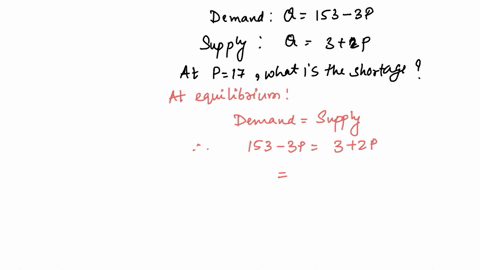 Demand: Q = 153 - 3P
Supply : Q = 3 + 2P
At P = 17, what is the shortage?
At equilibrium!
Demand = Supply
∴ 153 - 3P = 3 + 2P
=